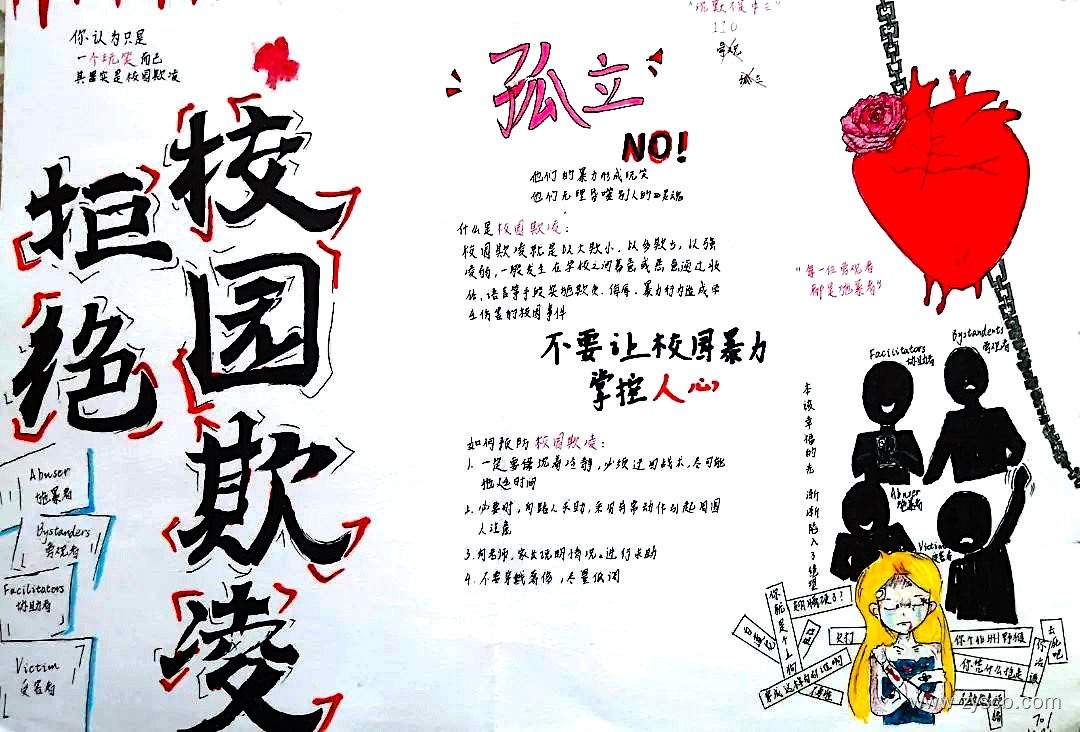 你认为只是
一个玩笑而已
其实是校园欺凌
拒绝
校园欺凌
Abuser
施暴者
Bystanders
旁观者
Facilitators
协助者
Victim
受害者
孤立
NO!
他们的暴力形成玩笑
他们无理吞噬别人的灵魂
什么是校园欺凌：
校园欺凌就是以大欺小、以多欺少，以强
凌弱，一般发生在学校之间蓄意或恶意通过肢
体、语言等手段实施欺负、侮辱、暴力行为造成学
生伤害的校园事件
不要让校园暴力
掌控人心
如何预防校园欺凌：
1. 一定要保沉着冷静，必须迂回战术，尽可能
拖延时间
2. 必要时，向路人求助，采用异常动作引起周围
人注意
3. 向老师、家长说明情况。进行求助
4. 不要穿戴奢侈，尽量低调
110
旁观
孤立
"每一位旁观者
都是施暴者"
本该幸福的先
渐渐陷入了绝望
Facilitators
协助者
Bystanders
旁观者
Abuser
施暴者
Victim
受害者
你就是个
欠打
你凭什么
去死吧
www.zyscb.com